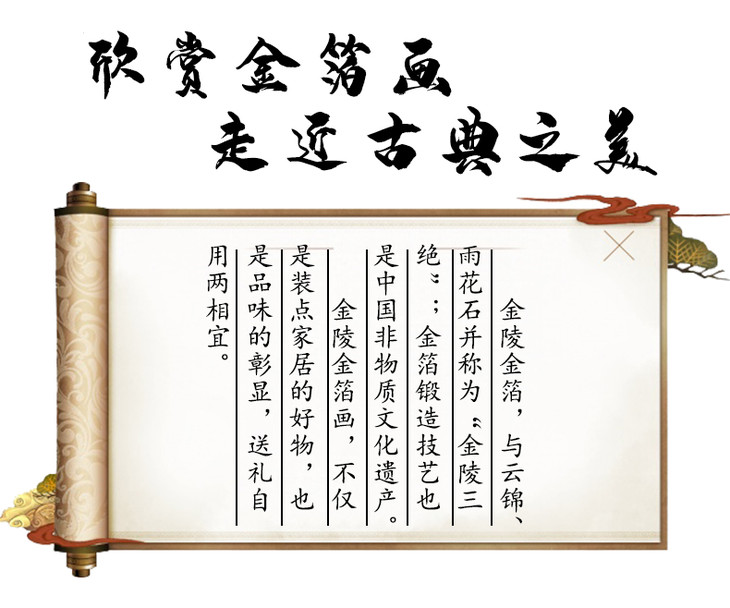 欣赏金箔画
走近古典之美
金陵金箔，与云锦、
雨花石并称为“金陵三
绝”；金箔锻造技艺也
是中国非物质文化遗产。
金陵金箔画，不仅
是装点家居的好物，也
是品味的彰显，送礼自
用两相宜。